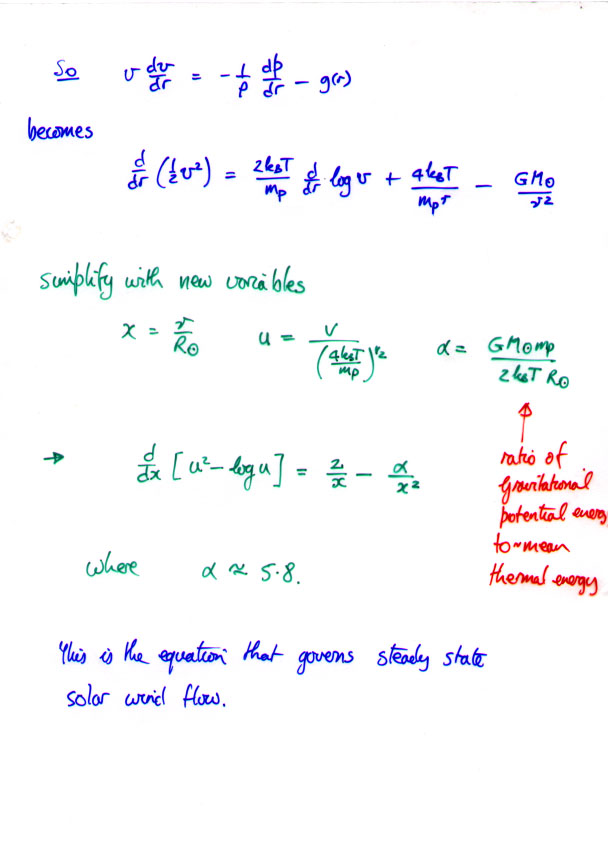 So v dv/dr = - 1/ρ dp/dr - g(r)
becomes
d/dr (½v²) = 2k_BT/m_p d/dr log v + 4k_BT/m_p r - GM⊙/r²
simplify with new variables
x = r/R⊙ u = v/(4k_BT/m_p)^½ α = GM⊙m_p/2k_BT R⊙
→ d/dx [u² - log u] = 2/x - α/x²
ratio of
gravitational
potential energy
to ~ mean
thermal energy
where α ≈ 5.8.
This is the equation that governs steady state
solar wind flow.